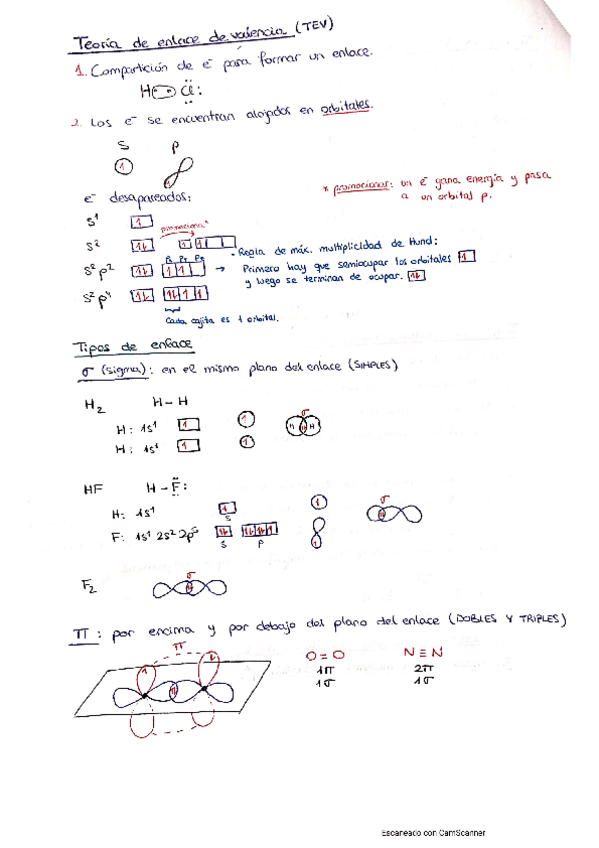 Teoría de enlace de valencia (TEV)
1. Compartición de e⁻ para formar un enlace.
H Cl:
2. Los e⁻ se encuentran alojados en orbitales.
S P
* promocionar: un e⁻ gana energía y pasa
a un orbital p.
e⁻ desapareados:
S¹ 1
promociona*
S² 1↓ 1 1
Px Py Pz
S²p² 1↓ 1 1 →
• Regla de máx. multiplicidad de Hund:
Primero hay que semiocupar los orbitales 1
y luego se terminan de ocupar. 1↓
S²p⁴ 1↓ 1↓ 1 1
Cada cajita es 1 orbital.
Tipos de enlace
σ (sigma): en el mismo plano del enlace (SIMPLES)
H₂ H – H
σ
H: 1s¹ 1 1 H H
H: 1s¹ 1 1
HF H – F:
H: 1s¹ 1 1 σ
S
F: 1s¹ 2s² 2p⁵ 1↓ 1↓ 1↓ 1
S P
F₂ σ
π: por encima y por debajo del plano del enlace (DOBLES Y TRIPLES)
π
O = O N ≡ N
1π 2π
1σ 1σ
Escaneado con CamScanner